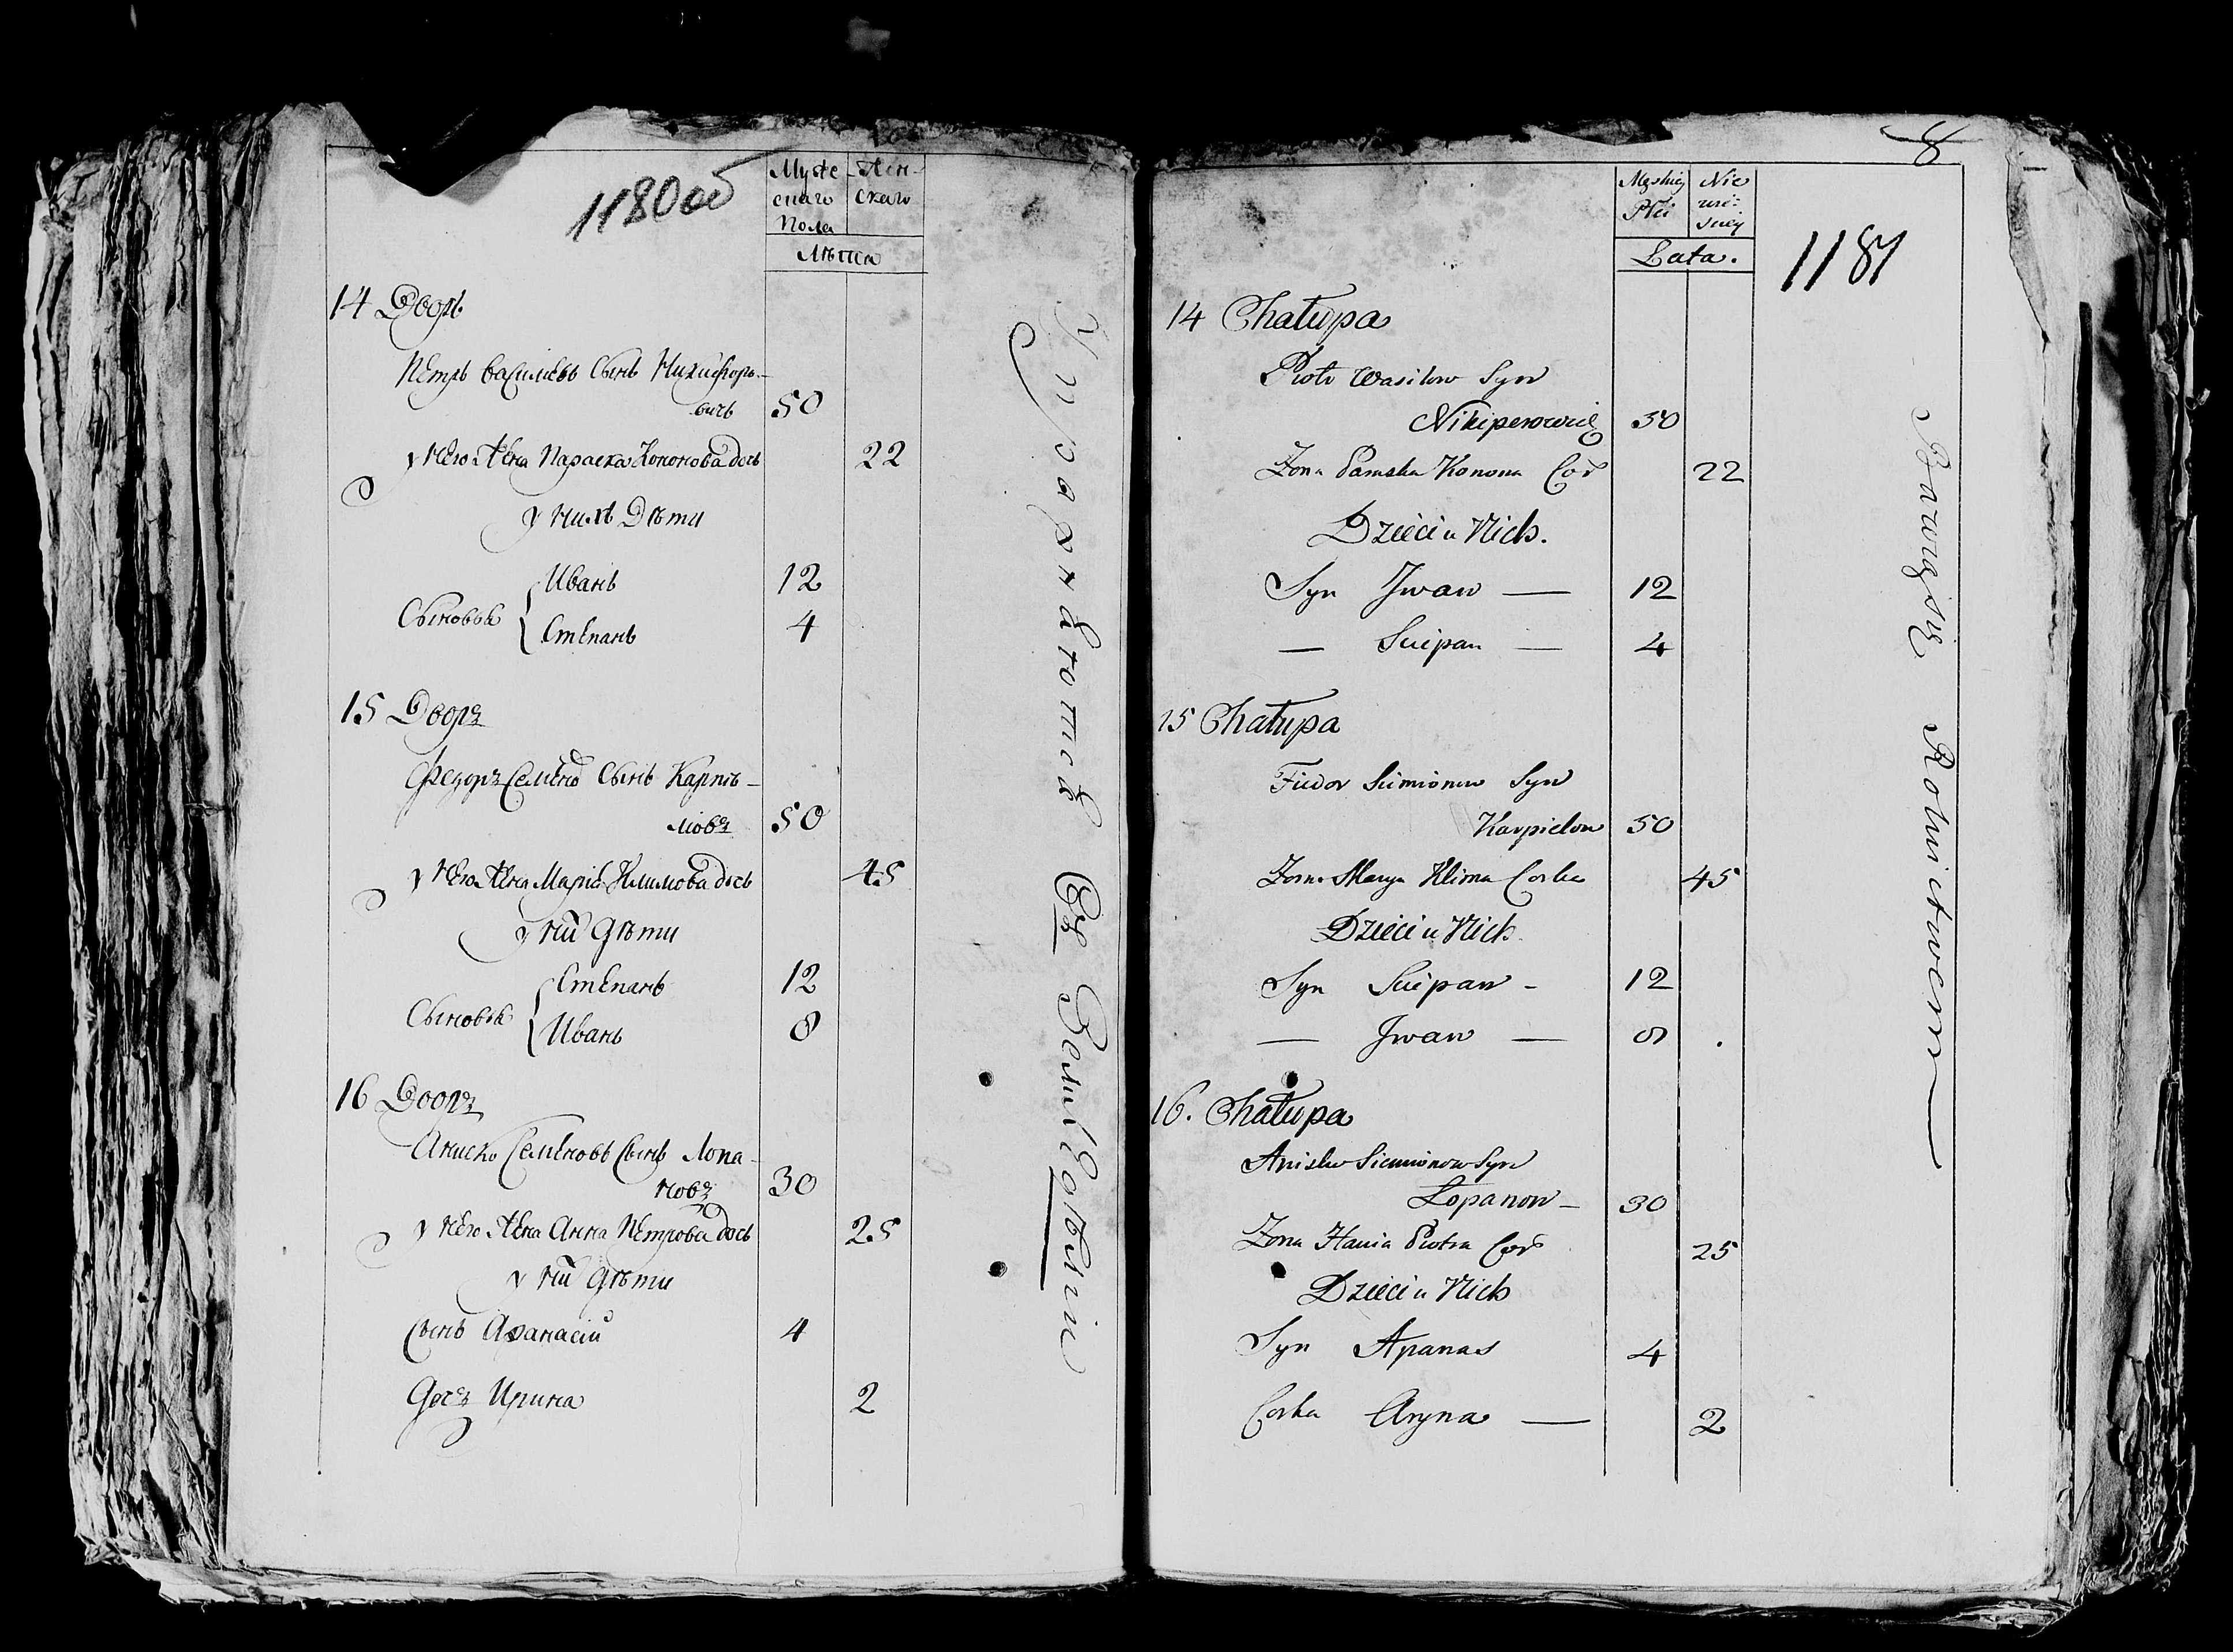 1180об
Мужескаго Пола
Женскаго
Лѣта
14 Дворъ
Петръ Василіевъ Сынъ Никифоро-
вичъ 50
у него Жена Параска Кононова дочь 22
у нихъ Дѣти
Сыновья
Иванъ 12
Степанъ 4
15 Дворъ
Федоръ Семеновъ Сынъ Карпѣ-
ловъ 50
у него Жена Марія Климова дочь 45
у нихъ Дѣти
Сыновья
Степанъ 12
Иванъ 8
16 Дворъ
Аниско Семеновъ Сынъ Лопа-
новъ 30
у него Жена Анна Петрова дочь 25
у нихъ Дѣти
Сынъ Афанасій 4
Дочь Ирина 2
Упражняются Въ Земледѣліи
8
1181
Męskiey Płci
Niewiesciey
Lata.
14 Chałupa
Piotr Wasilow Syn
Nikiperowicz 50
Żona Paraska Konona Cor 22
Dzieci u Nich.
Syn Jwan — 12
— Sciepan — 4
15 Chałupa
Fiedor Siemionow Syn
Karpielow 50
Żona Marya Klima Corka 45
Dzieci u Nich.
Syn Sciepan - 12
— Jwan — 8
16. Chałupa
Anisko Siemionow Syn
Łopanow - 30
Żona Hania Piotra Cor 25
Dzieci u Nich
Syn Apanas 4
Corka Aryna — 2
Bawią się Rolnictwem —